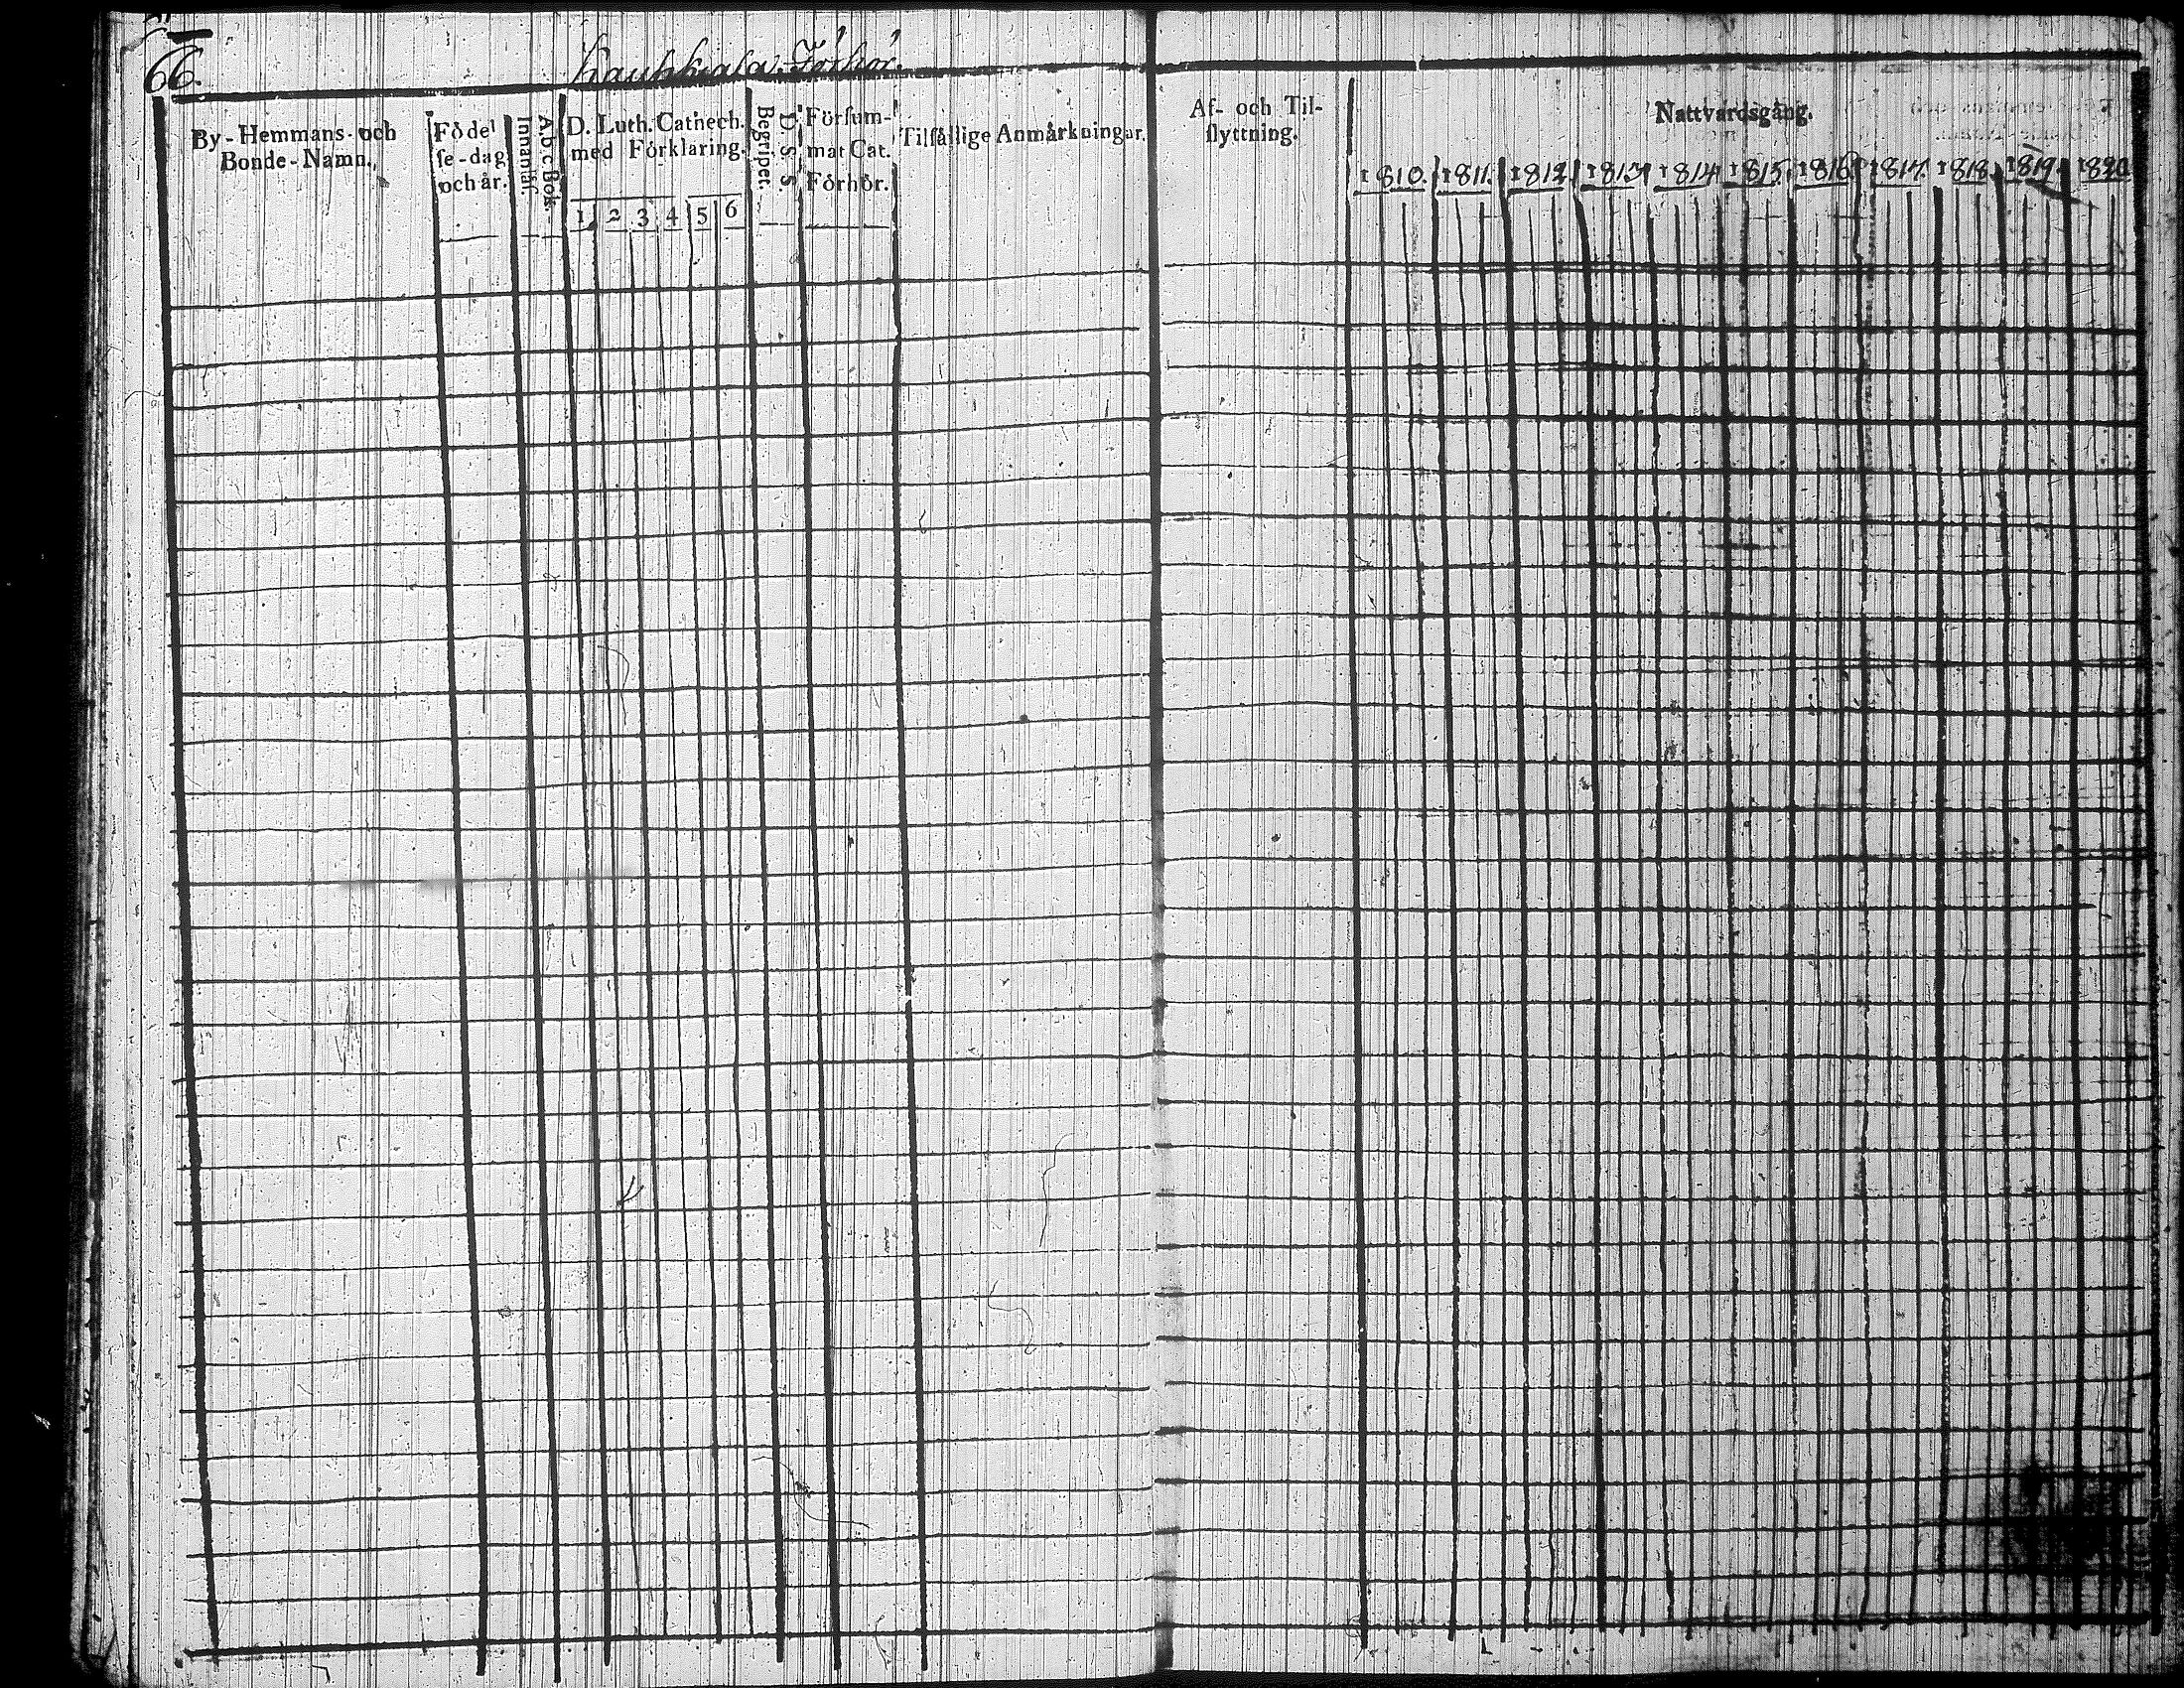 66.
Kaukkiala Förhör.
By-Hemmans-och
Bonde-Namn.
Födel
se-dag
och år.
Innanläs.
A b c Bok.
D. Luth. Cathech.
med Förklaring.
1 2 3 4 5 6
Begriper.
D. S. S.
Försum-
mat Cat.
Förhör.
Tilfällige Anmärkningar.
Af- och Til-
flyttning.
Nattvardsgång.
1810. 1811. 1812. 1813 1814 1815. 1816 1817. 1818. 1819. 1820